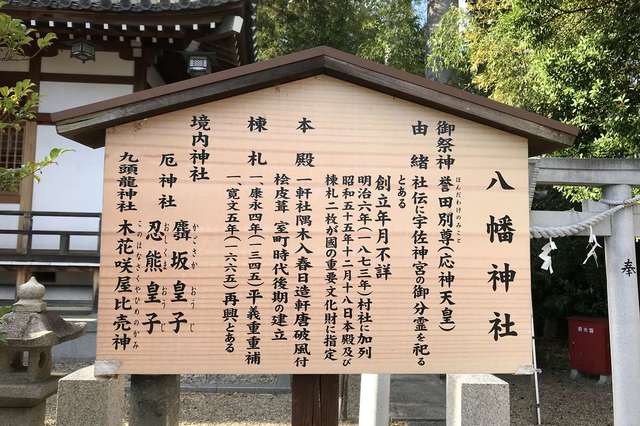 八幡神社
御祭神 誉田別尊(応神天皇)
ほんだわけのみこと
由緒 社伝に宇佐神宮の御分霊を祀る
とある
創立年月不詳
明治六年(一八七三年)村社に加列
昭和五十五年十二月十八日本殿及び
棟札二枚が國の重要文化財に指定
本殿 一軒社隅木入春日造軒唐破風付
桧皮葺 室町時代後期の建立
棟札 一、康永四年(一三四五)平義重重補
一、寛文五年(一六六五)再興とある
境内神社
厄神社 麛坂皇子
かごさかおうじ
忍熊皇子
おしくまおうじ
九頭龍神社 木花咲屋比売神
このはなさくやひめのかみ
奉